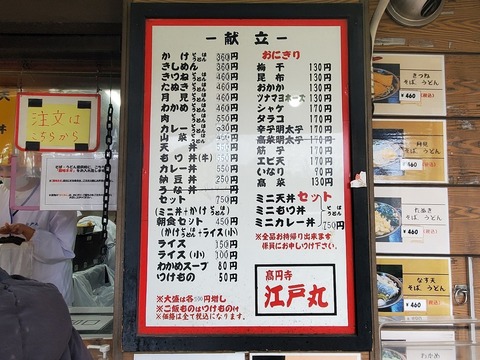 注文は
こちらから
ー献立ー
かけ そば うどん 360円
きしめん 360円
きつね そば うどん 460円
たぬき そば うどん 460円
月見 そば うどん 460円
わかめ そば うどん 460円
肉 そば うどん 550円
カレー そば うどん 530円
山菜 そば うどん
天丼
もつ丼(牛)
カレー丼 550円
納豆丼 250円
うな丼
セット 750円
(ミニ丼+かけ そば うどん)
朝食セット 450円
(かけ そば うどん+ライス(小)
ライス 150円
ライス(小) 100円
わかめスープ 80円
つけもの 50円
※大盛は各100円増し
※ご飯ものはつけもの付
※価格は全て税込になります。
おにぎり
梅干 130円
昆布 130円
おかか 130円
ツナマヨネーズ 130円
シャケ 170円
タラコ 170円
辛子明太子 170円
高菜明太子 170円
筋子 170円
エビ天 170円
いなり 90円
高菜 130円
ミニ天丼セット
ミニもつ丼 そば うどん
ミニカレー丼 750円
※全品お持帰り出来ます
係員にお申しつけ下さい。
高円寺
江戸丸
きつね
そば うどん
¥460(税込)
月見
そば うどん
¥460(税込)
たぬき
そば うどん
¥460(税込)
なす天
そば うどん
¥460(税込)
わかめ
そば うどん